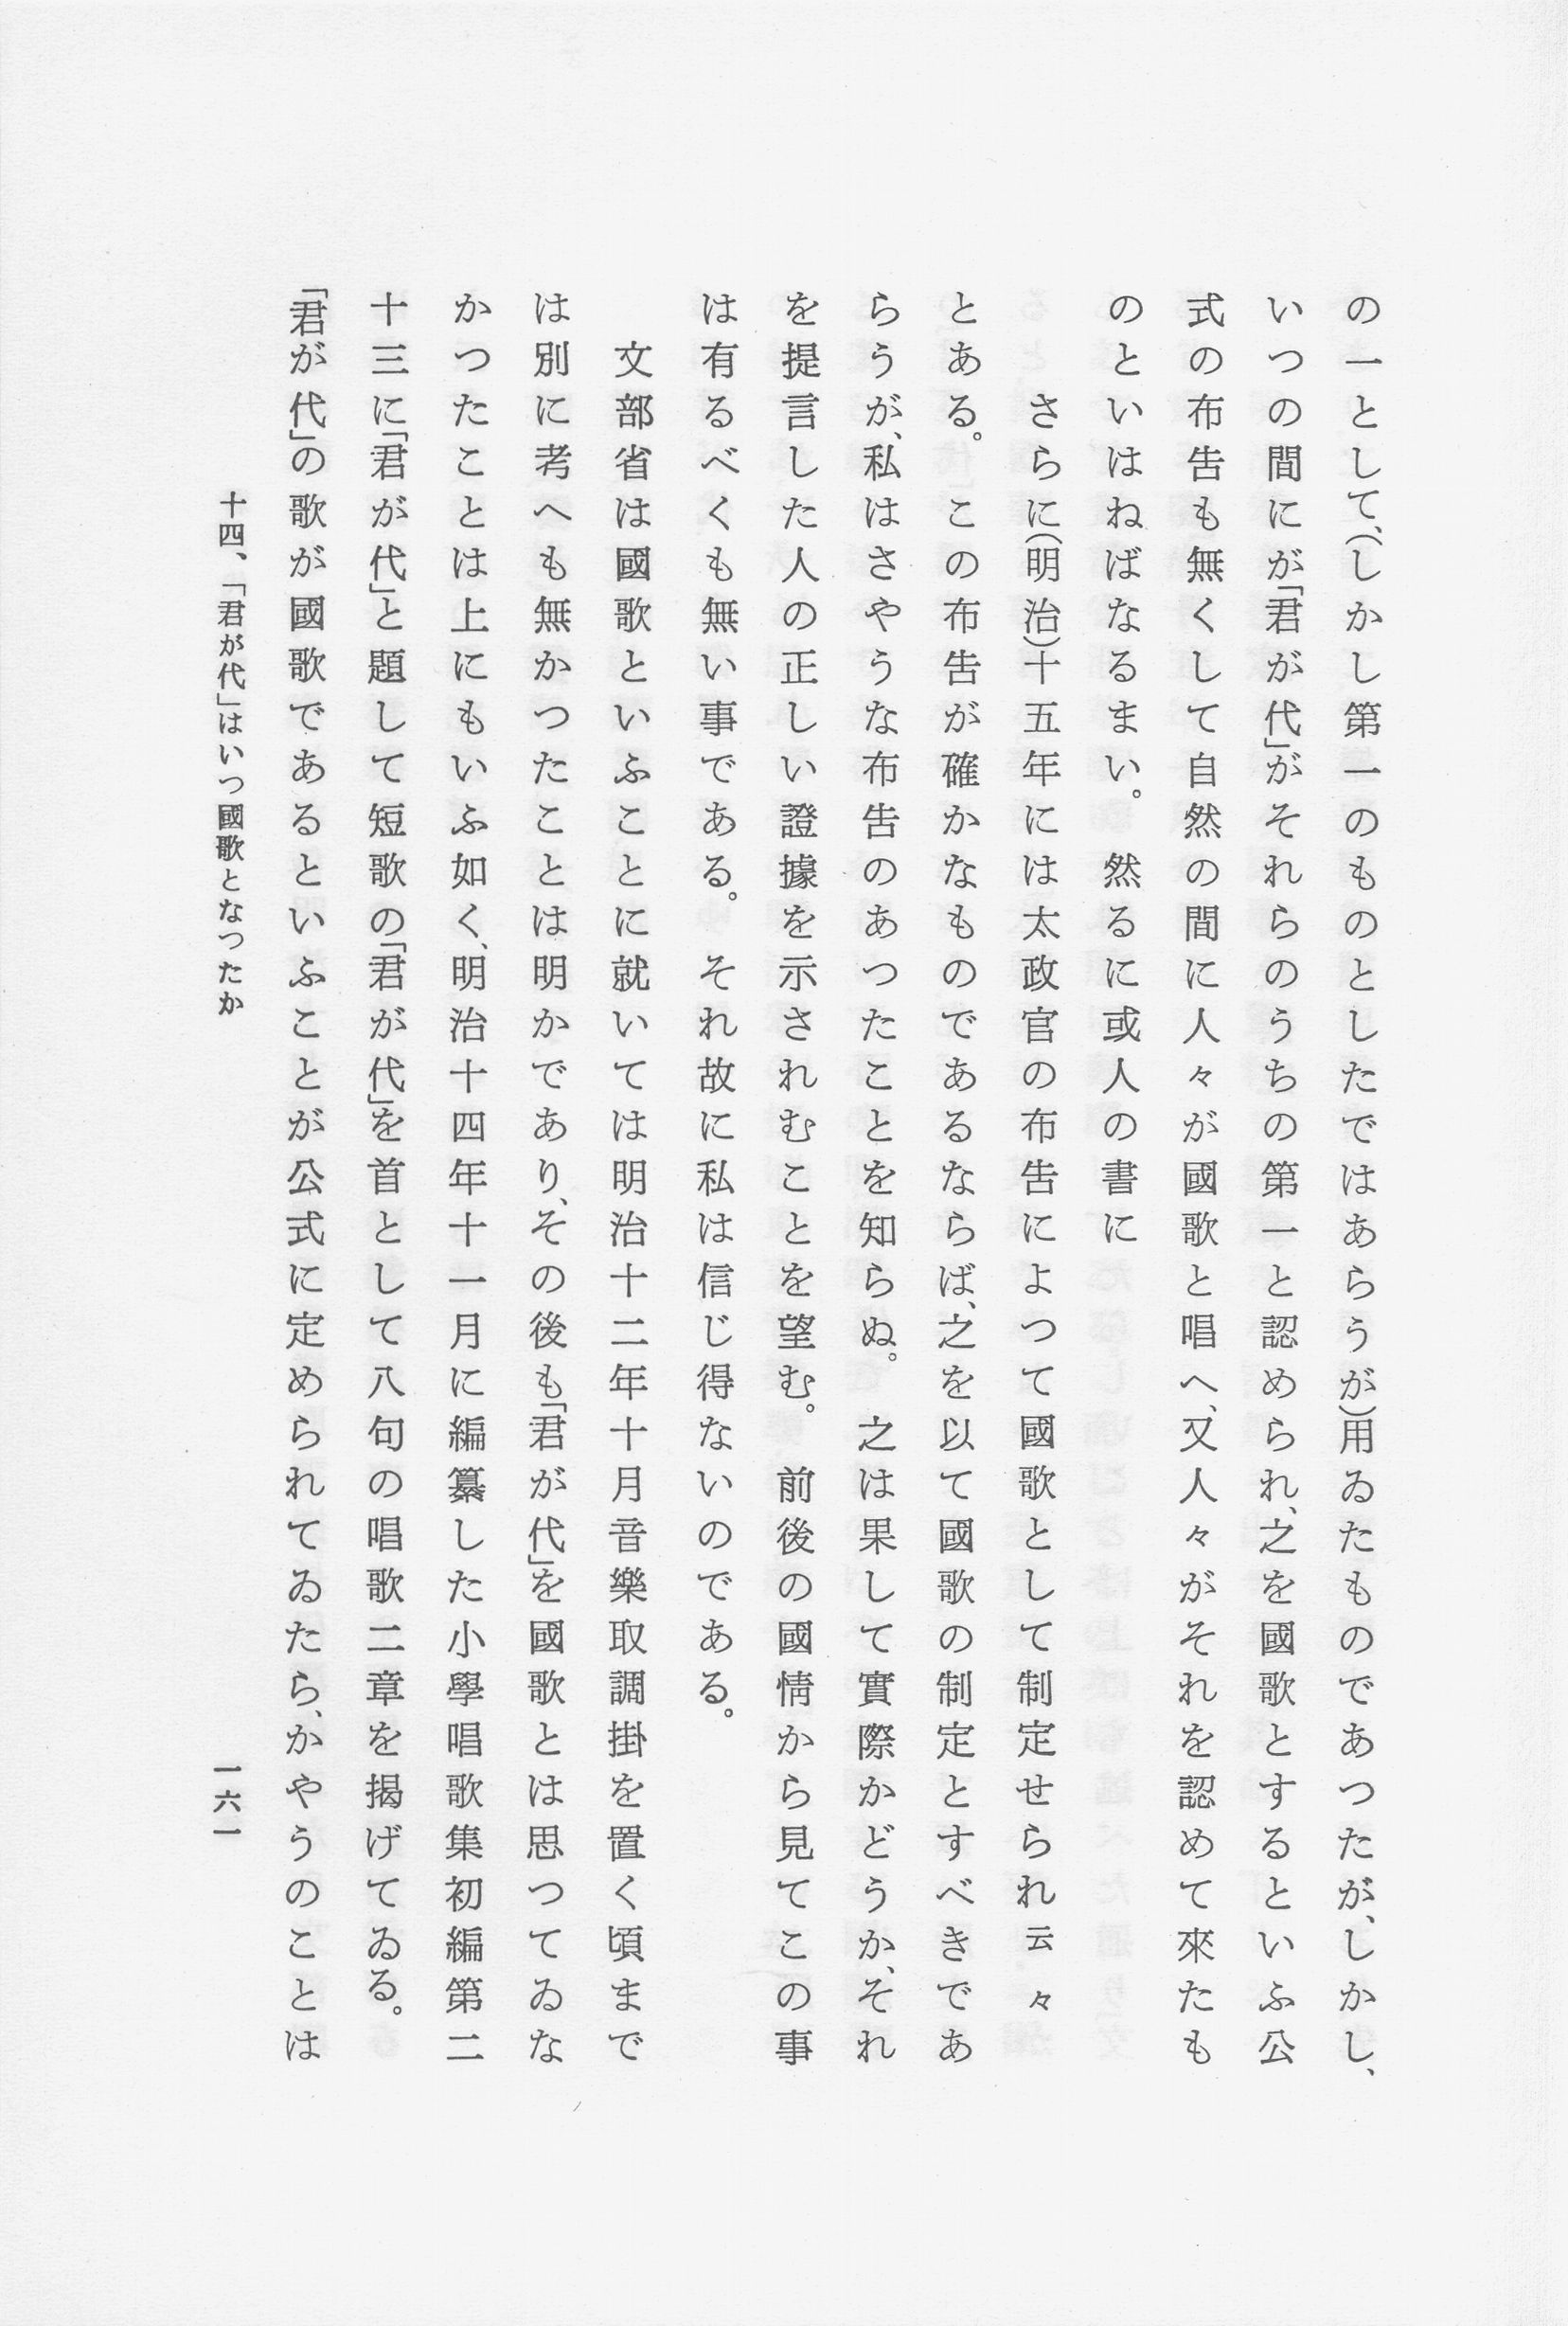 の一として、（しかし第一のものとしたではあらうが）用ゐたものであつたが、しかし、
いつの間にが「君が代」がそれらのうちの第一と認められ、之を國歌とするといふ公
式の布告も無くして自然の間に人々が國歌と唱へ、又人々がそれを認めて來たも
のといはねばなるまい。　然るに或人の書に
さらに（明治）十五年には太政官の布告によつて國歌として制定せられ云々
とある。　この布告が確かなものであるならば、之を以て國歌の制定とすべきであ
らうが、私はさやうな布告のあつたことを知らぬ。　之は果して實際かどうか、それ
を提言した人の正しい證據を示されむことを望む。　前後の國情から見てこの事
は有るべくも無い事である。　それ故に私は信じ得ないのである。
文部省は國歌といふことに就いては明治十二年十月音樂取調掛を置く頃まで
は別に考へも無かつたことは明かであり、その後も「君が代」を國歌とは思つてゐな
かつたことは上にもいふ如く、明治十四年十一月に編纂した小學唱歌集初編第二
十三に「君が代」と題して短歌の「君が代」を首として八句の唱歌二章を揭げてゐる。
「君が代」の歌が國歌であるといふことが公式に定められてゐたら、かやうのことは
十四、「君が代」はいつ國歌となつたか
一六一